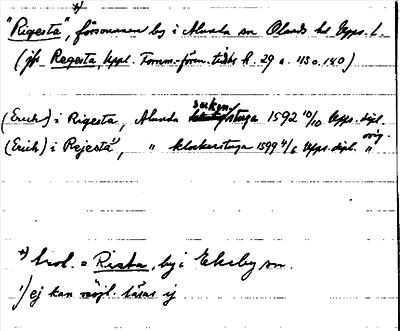 x)
"Rigesta", försvunnen by i Alunda sn Olands hd Upps. l.
(jfr Regesta Uppl. Fornm.-fören. tidskr. h. 29 s. 113 o. 140)
socken
(Erich) i Rigesta, Alunda stuga 1592 10/10 Upps. dipl.
orig.
(Erich) i Rejestä¹, " klockerstuga 1599 4/6 Upps. dipl. "
x) trol. = Rista, by i Ekeby sn.
¹) ej kan möjl. läsas ij